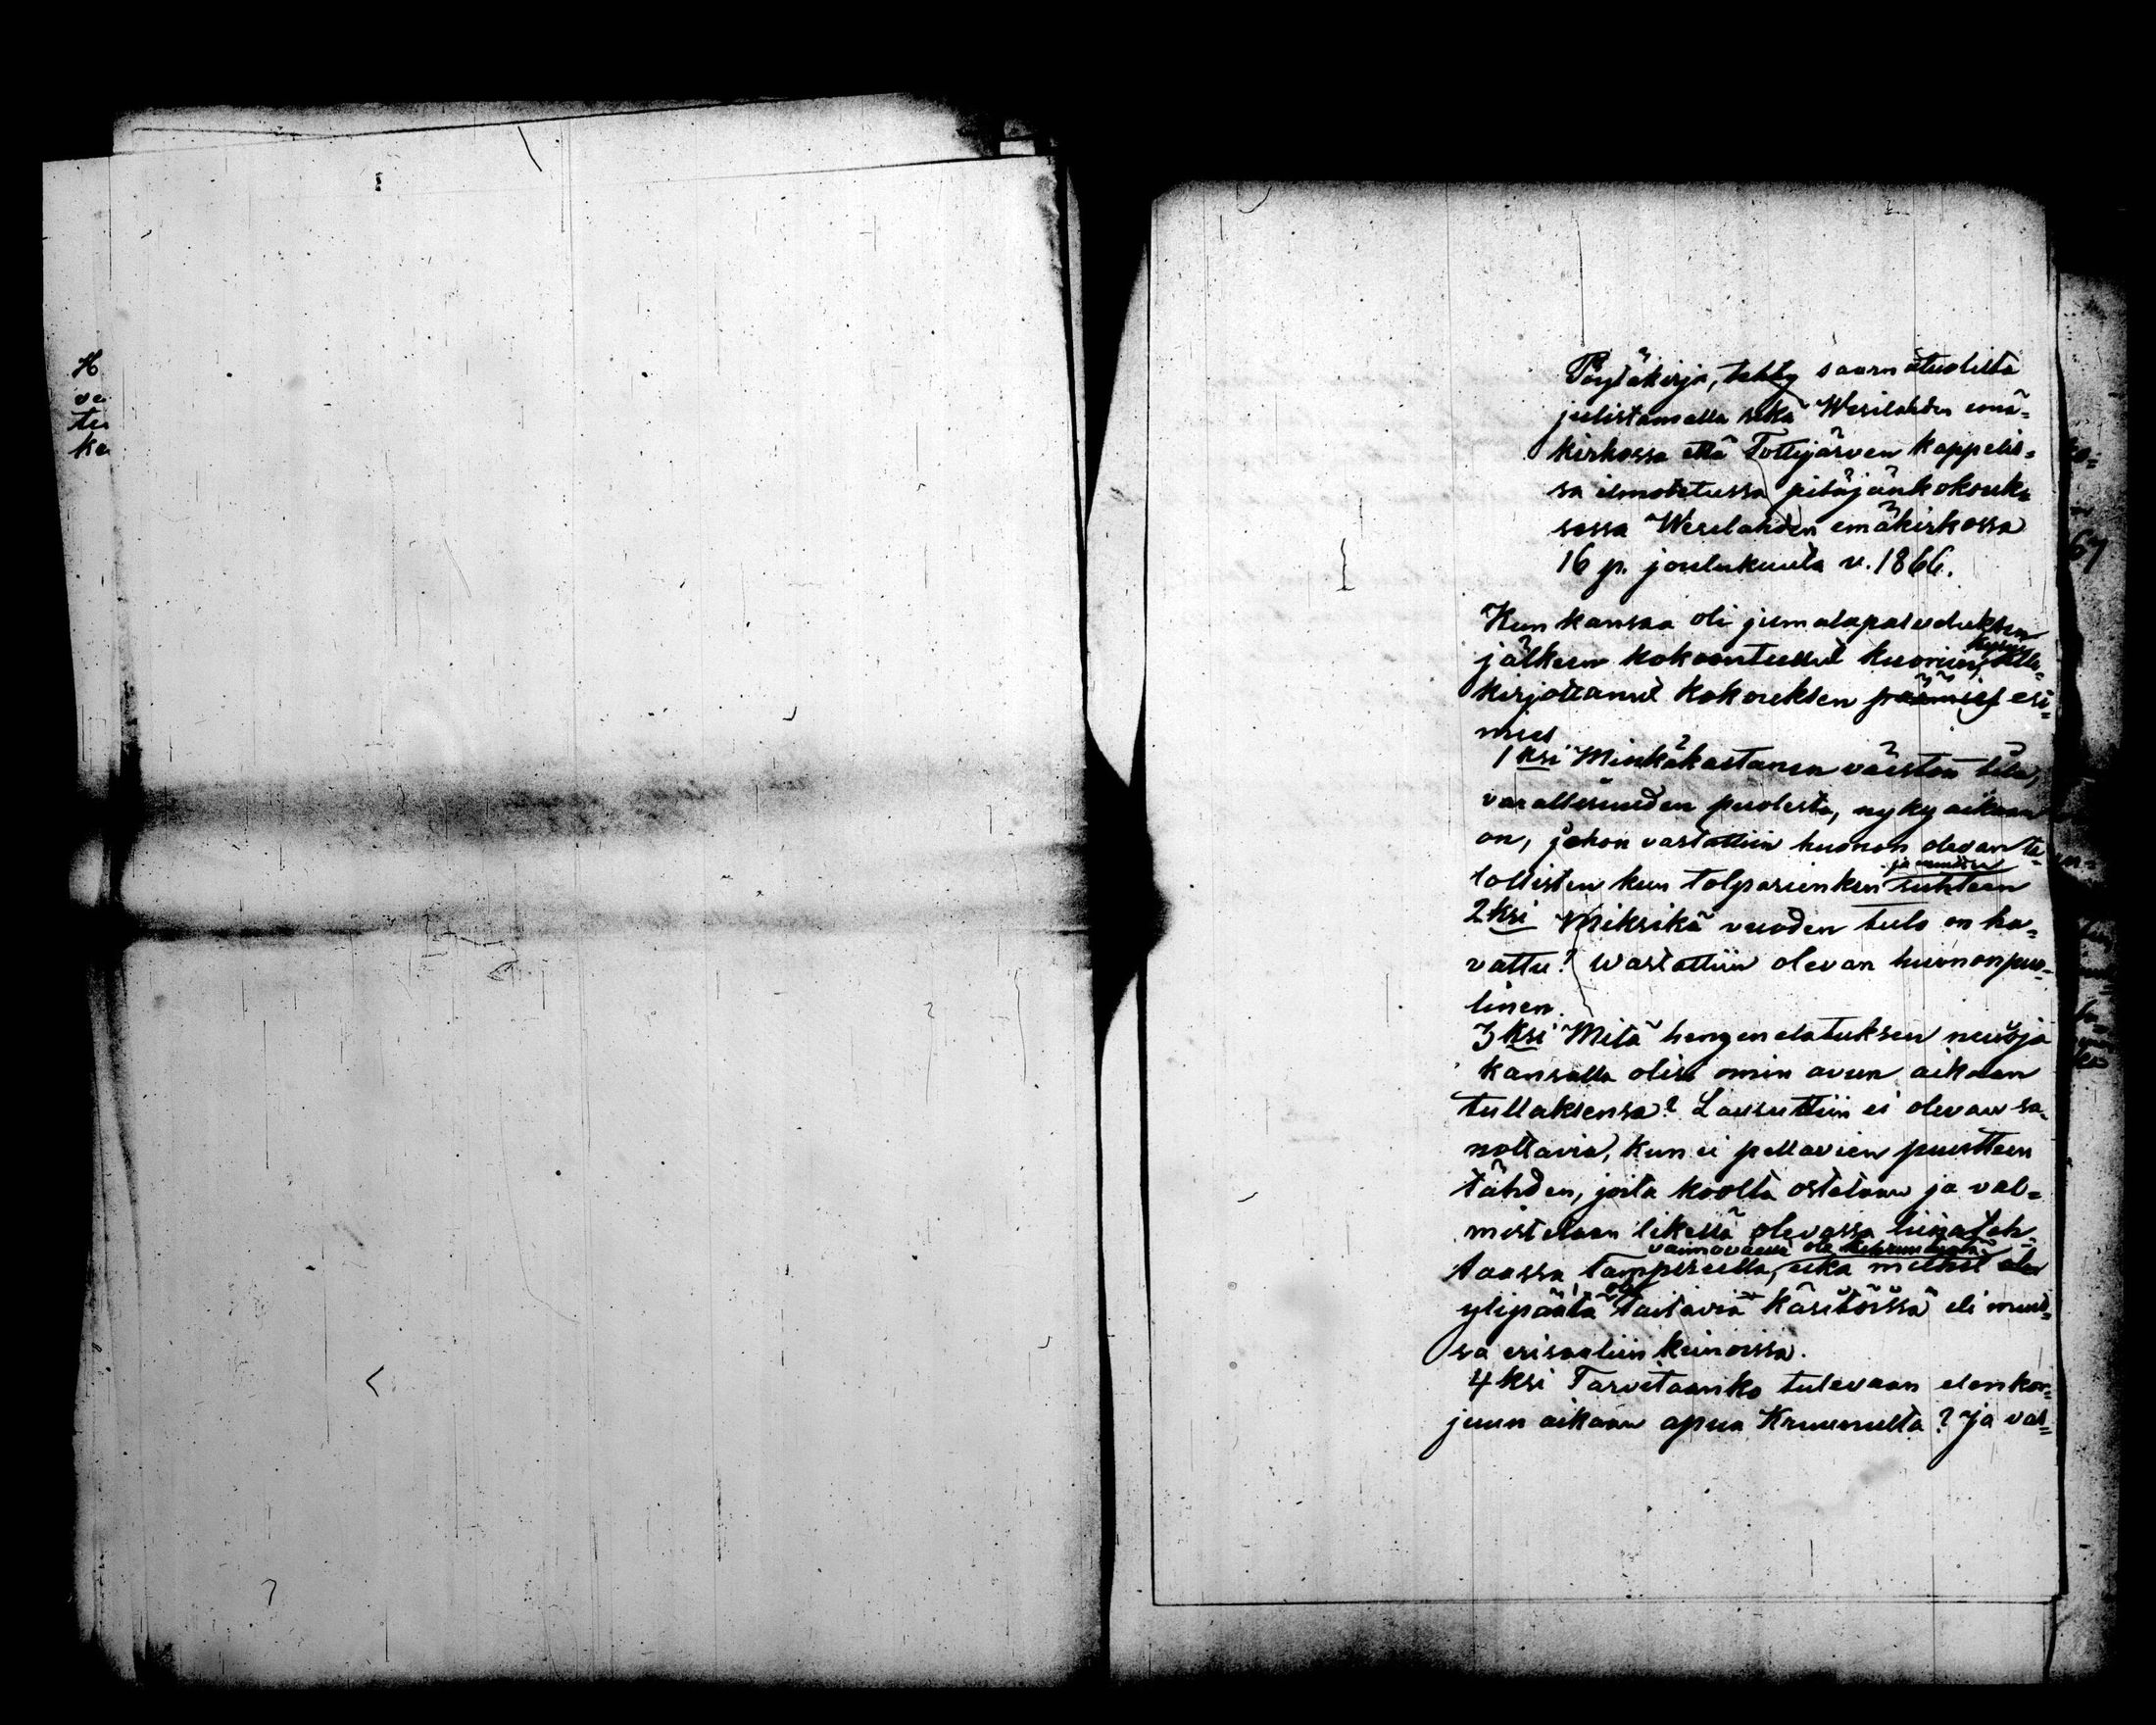 H
ve
tu
ka
Pöytäkirja, tehty saarnatuolilta
julistamalla sekä Wesilahden emä-
kirkossa että Tottijärven kappelis-
sa ilmotetussa pitäjänkokouk-
sessa Wesilahden emäkirkossa
16 p. joulukuuta v. 1866.
Kun kansaa oli jumalapalveluksen
jälkeen kokoontunut kuoriin, kysyi alle-
kirjottanut kokouksen esi-
mies
1ksi Minkäkaltanen väestön tila,
varallisuuden puolesta, nykyaikaan
on, johon vastattiin huonon olevan ta-
lollisten kun torpparienkin ja muiden suhteen
2ksi Miksikä vuoden tulo on ha-
vattu? Wastattiin olevan huononpuo-
linen.
3ksi Mitä hengenelatuksen neuvoja
kansalla olisi omin avun aikaan
tullaksensa? Lausuttiin ei olevan sa-
nottavia, kun ei pellavien puutteen
tähden, joita koolta ostetaan ja val-
mistetaan likellä olevassa liinateh-
taassa Tampereella, vaimoväellä ole kehruutyötä eikä miehet
ylipäätä taitavia käsitöissä eli muis-
sa erisaaliin keinoissa.
4ksi Tarvitaanko tulevaan elonkor-
juun aikaan apua Kruunulta? Ja vas-
67